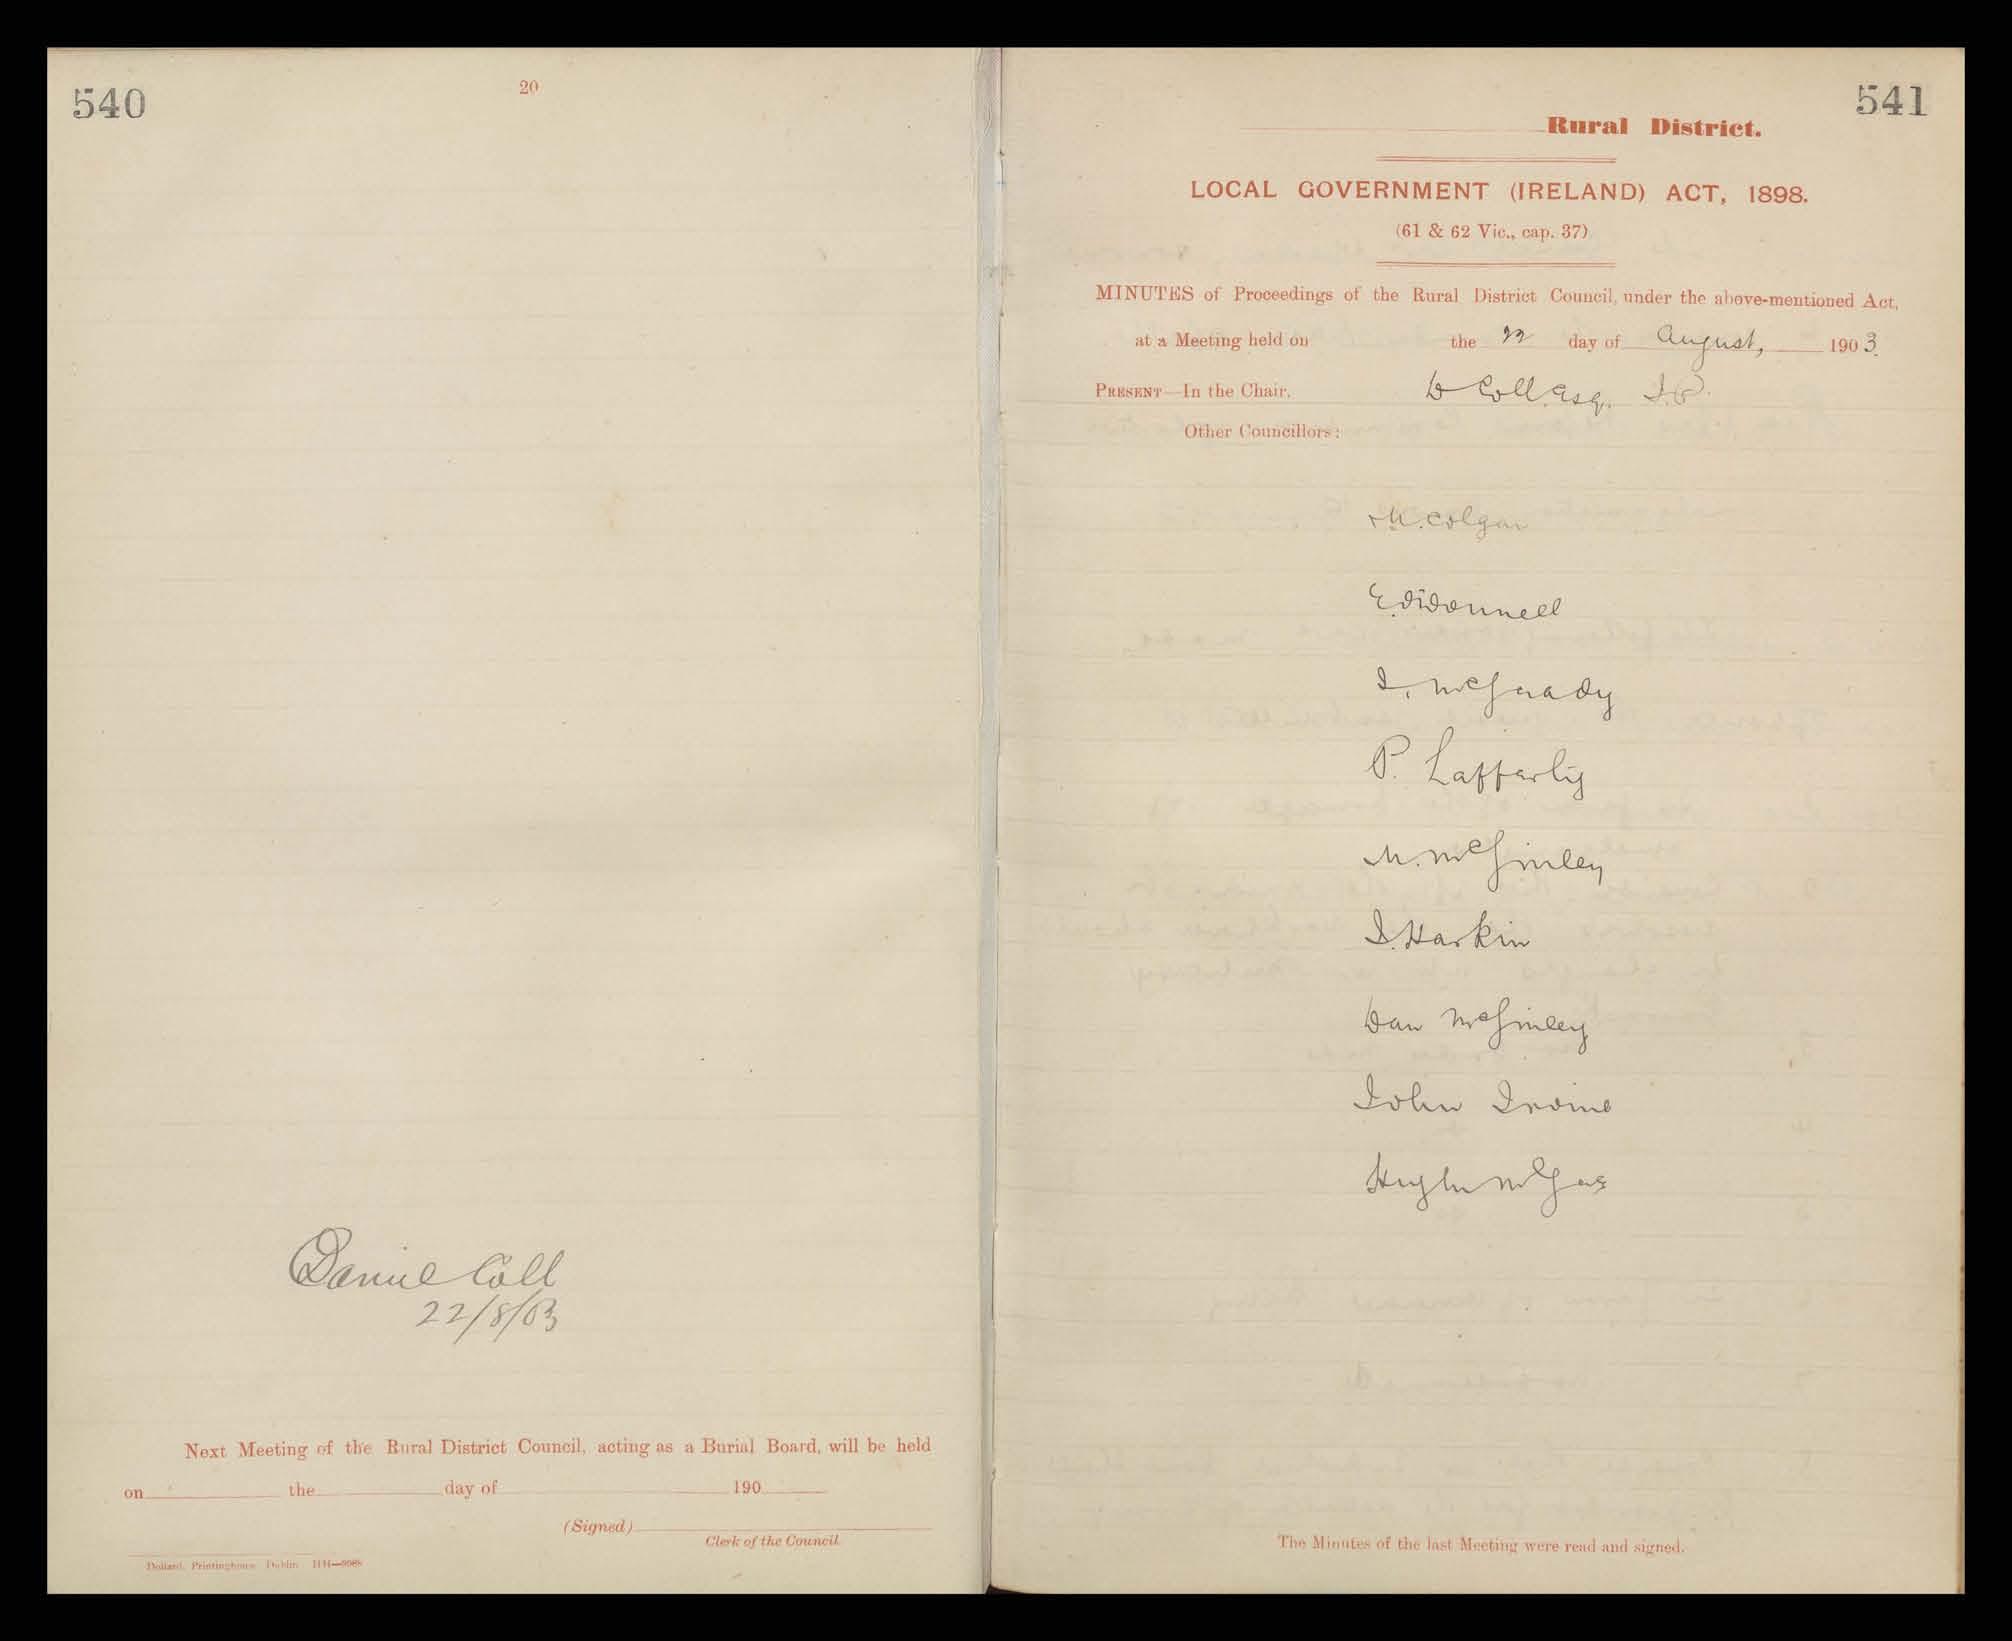 540
20
Daniel Coll
22/8/03
Next Meeting of the Rural District Council, acting as a Burial Board, will be held
on the day of 190
(Signed)
Clerk of the Council.
Dollard, Printinghouse, Dublin
541
Rural District.
LOCAL GOVERNMENT (IRELAND) ACT, 1898.
(61 & 62 Vic., cap. 37)
MINUTES of Proceedings of the Rural District Council, under the above-mentioned Act,
at a Meeting held on the 22 day of August, 1903
PRESENT—In the Chair, D Coll. Esq. J.P.
Other Councillors:
M. Colgan
E. O'Donnell
J. McGrady
P. Lafferty
M. McGinley
J. Harkin
Dan McGinley
John Irvine
Hugh McGee
The Minutes of the last Meeting were read and signed.